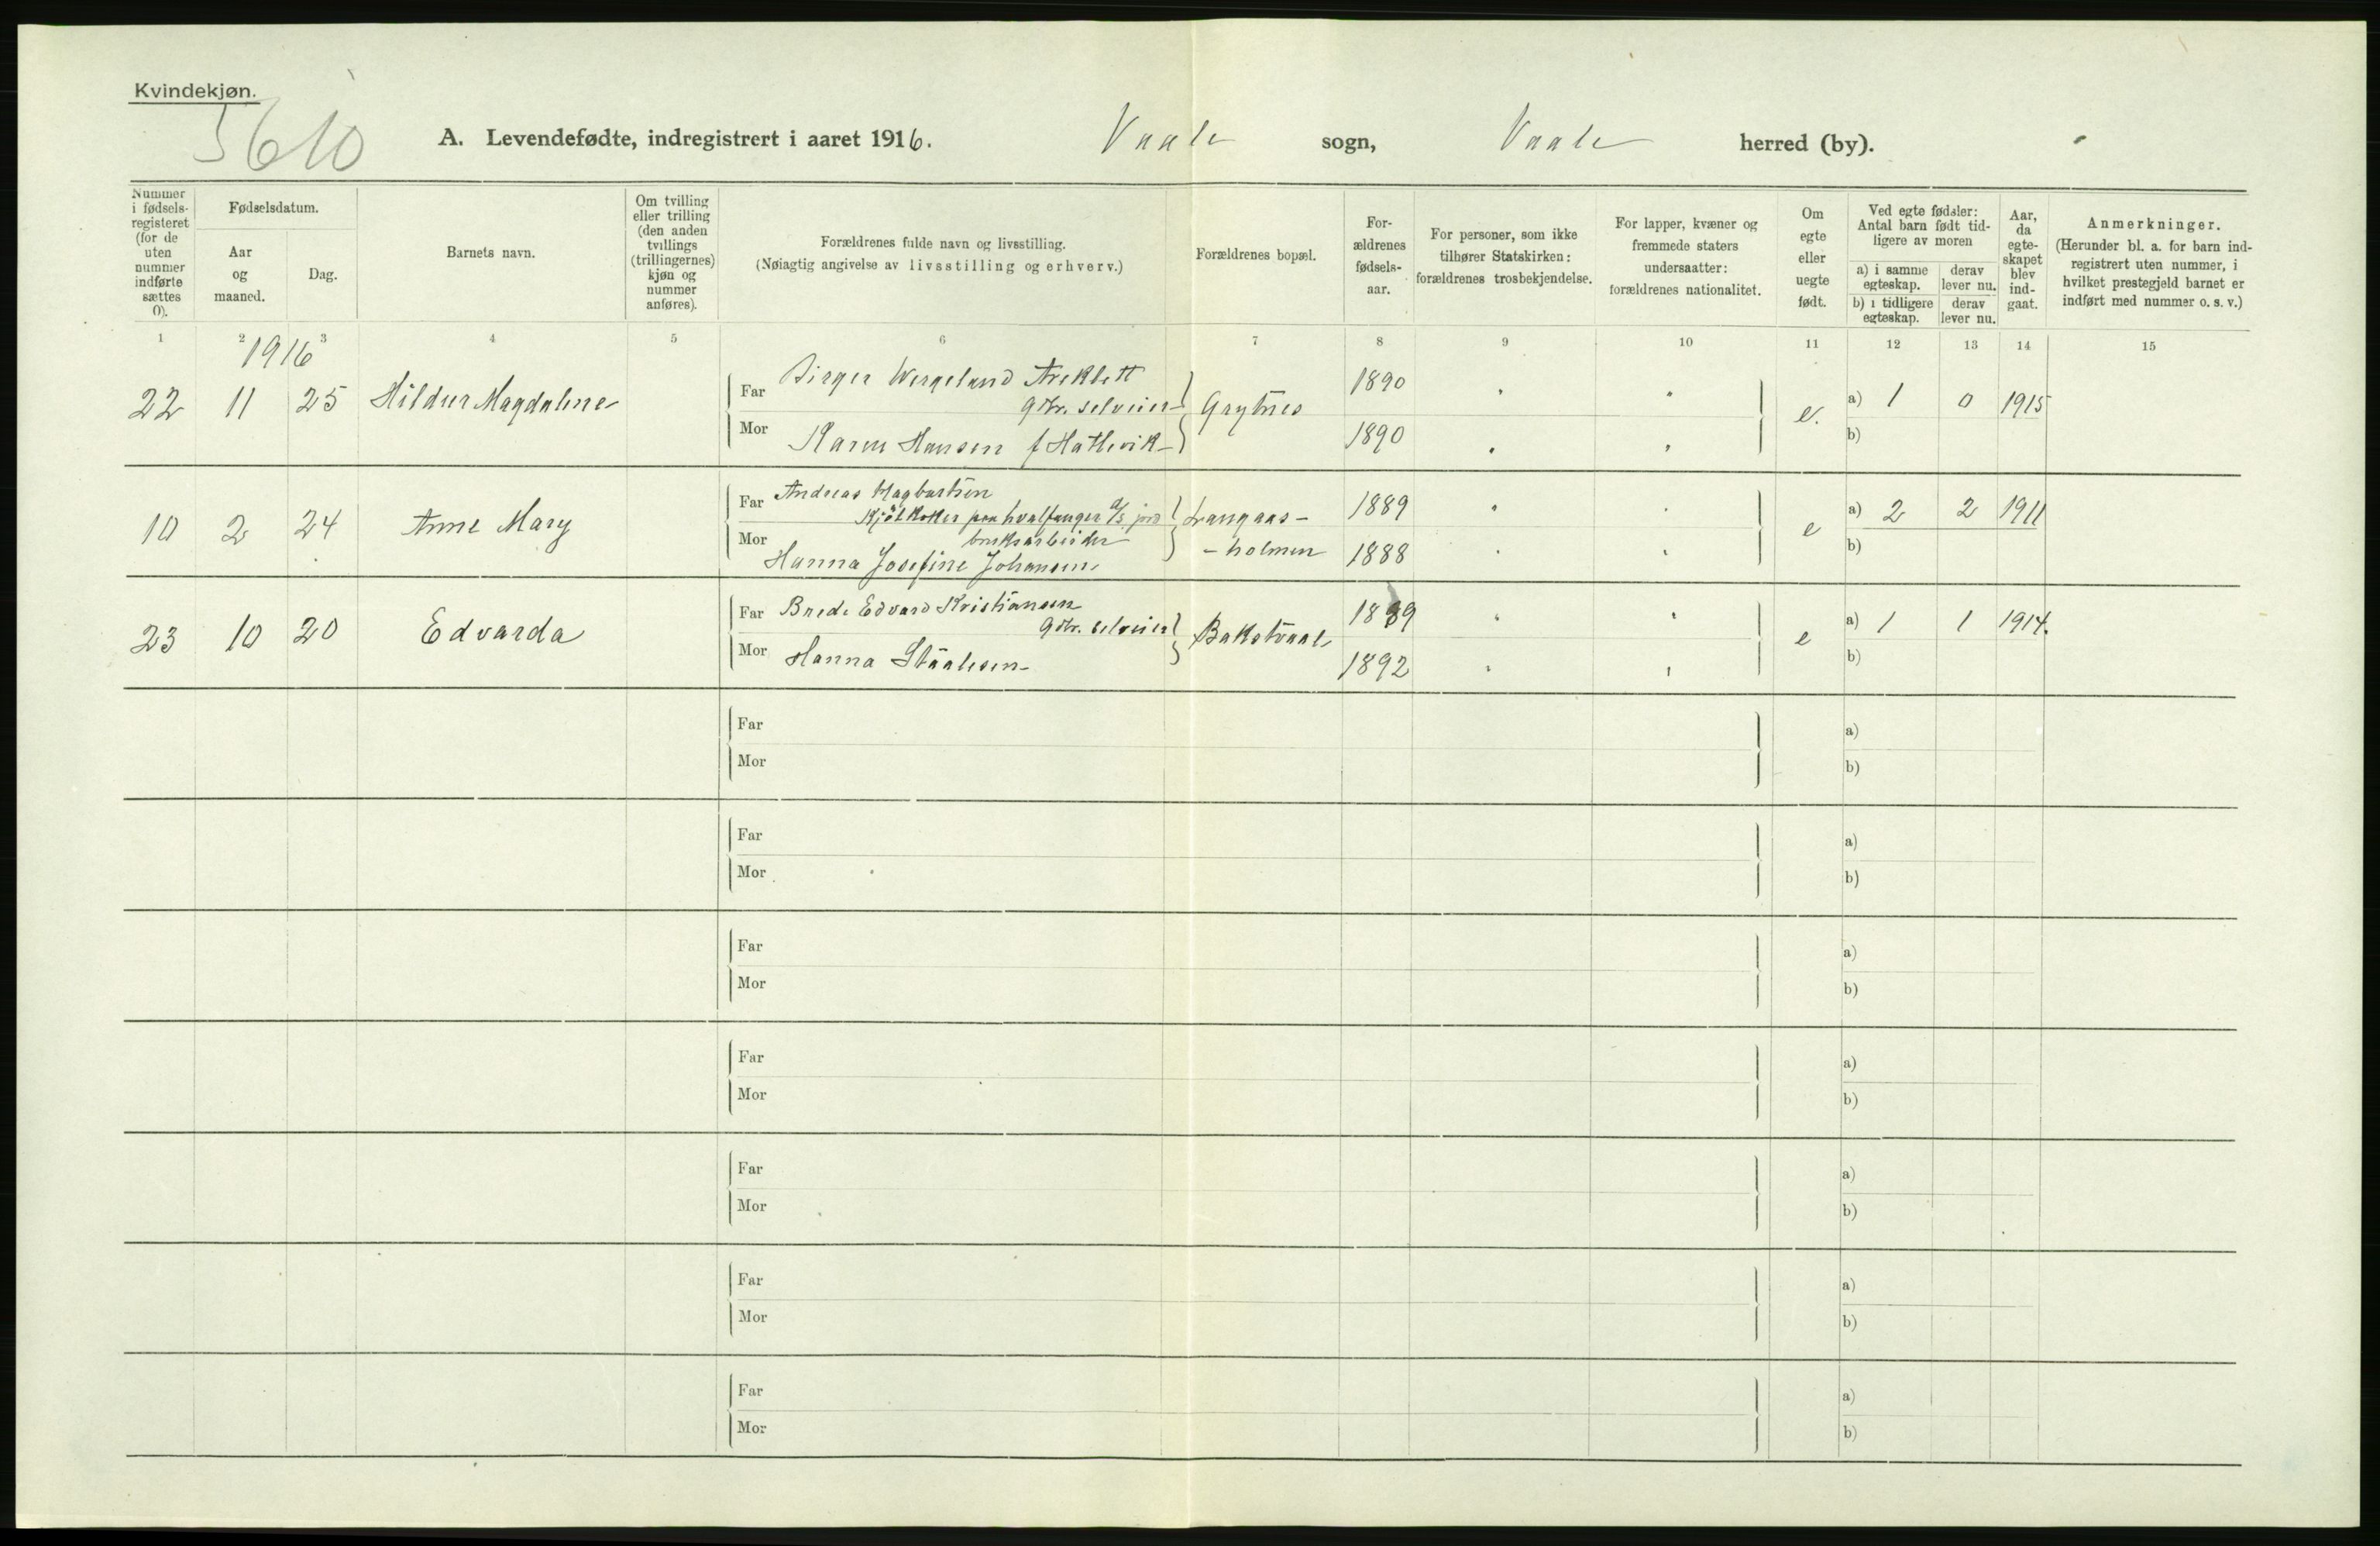 Kvindekjøn.
5610
A. Levendefødte, indregistrert i aaret 1916. Vaale sogn, Vaale herred (by).
Nummer i fødsels-registeret (for de uten nummer indførte sættes 0).
Fødselsdatum.
Aar og maaned.
Dag.
Barnets navn.
Om tvilling eller trilling (den anden tvillings (trillingernes) kjøn og nummer anføres).
Forældrenes fulde navn og livsstilling.
(Nøiagtig angivelse av livsstilling og erhverv.)
Forældrenes bopæl.
For-ældrenes fødsels-aar.
For personer, som ikke tilhører Statskirken: forældrenes trosbekjendelse.
For lapper, kvæner og fremmede staters undersaatter: forældrenes nationalitet.
Om egte eller uegte født.
Ved egte fødsler: Antal barn født tid-ligere av moren
a) i samme egteskap.
derav lever nu.
b) i tidligere egteskap.
derav lever nu.
Aar, da egte-skapet blev ind-gaat.
Anmerkninger.
(Herunder bl. a. for barn ind-registrert uten nummer, i hvilket prestegjeld barnet er indført med nummer o. s. v.)
1 2 3 4 5 6 7 8 9 10 11 12 13 14 15
1916
22 11 25 Hildur Magdalene
Far Birger Wergeland Areklett
gdbr. selveier
Mor Karen Hansen f Hatlevik
Grytnes
1890 " "
1890 " "
e.
a) 1 0 1915
b)
10 2 24 Anne Mary
Far Andreas Hagbartsen
Kjøtkoker paa hvalfanger a/s, jord
bruksarbeider
Mor Hanna Josefine Johansen
Langaas-
-holmen
1889 " "
1888 " "
e
a) 2 2 1911
b)
23 10 20 Edvarda
Far Brede Edvard Kristiansen
gdbr. selveier
Mor Hanna Staalesen
Bakstvaal
1889 " "
1892 " "
e
a) 1 1 1914.
b)
Far a)
Mor b)
Far a)
Mor b)
Far a)
Mor b)
Far a)
Mor b)
Far a)
Mor b)
Far a)
Mor b)
Far a)
Mor b)